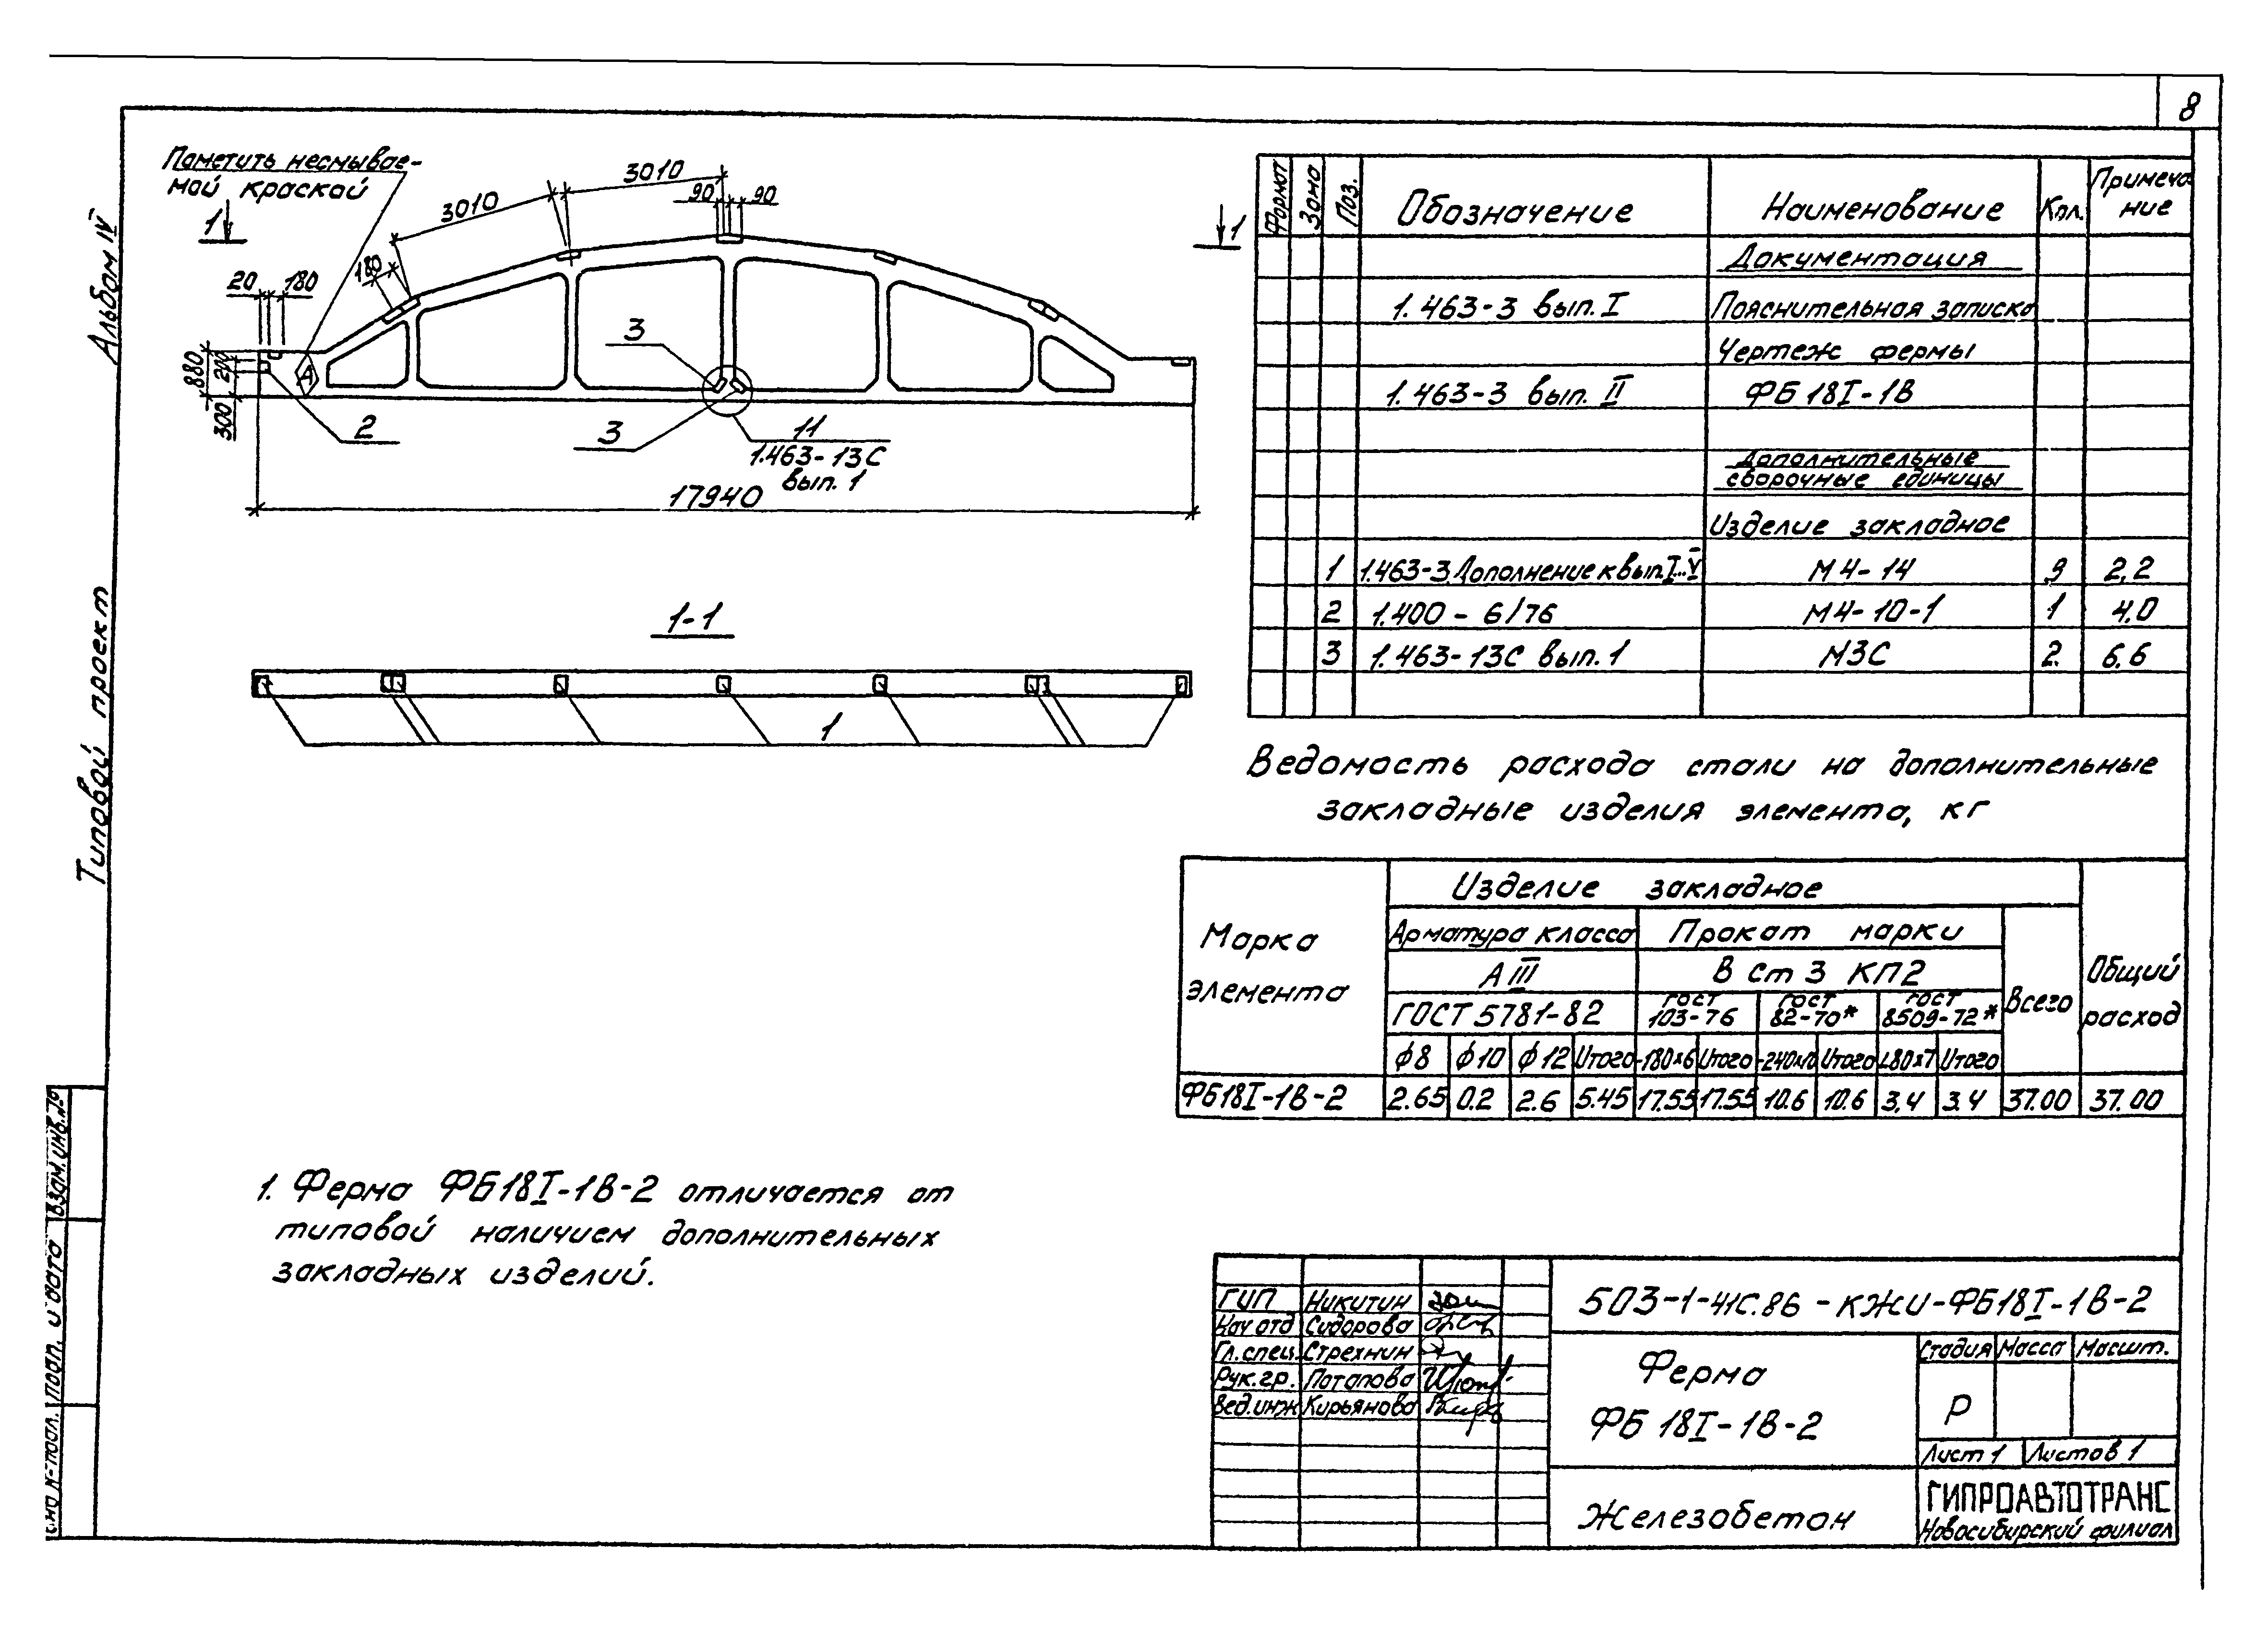 8
Альбом IV
Типовой проект
Пометить несмывае-
мой краской
1
1
3010
3010
90
90
180
20
180
880
210
300
А
2
3
3
11
1.463-13С
вып. 1
17940
1-1
1
Формат Зона Поз. Обозначение Наименование Кол. Примеча-
ние
Документация
1.463-3 вып. I Пояснительная записка
Чертеж фермы
1.463-3 вып. II ФБ 18I-1В
Дополнительные
сборочные единицы
Изделие закладное
1 1.463-3 Дополнение к вып. I...V М4-14 9 2,2
2 1.400-6/76 М4-10-1 1 4.0
3 1.463-13С вып. 1 М3С 2 6.6
Ведомость расхода стали на дополнительные
закладные изделия элемента, кг
Марка
элемента
Изделие закладное
Арматура класса Прокат марки
А III В ст 3 КП2
ГОСТ 5781-82 ГОСТ 103-76 ГОСТ 82-70* ГОСТ 8509-72* Всего
Общий
расход
ф8 ф10 ф12 Итого -180х6 Итого -240х10 Итого L80х7 Итого
ФБ18I-1В-2 2.65 0.2 2.6 5.45 17.55 17.55 10.6 10.6 3.4 3.4 37.00 37.00
1. Ферма ФБ18I-1В-2 отличается от
типовой наличием дополнительных
закладных изделий.
Взам. инв. №
Подп. и дата
ГИП Никитин
Нач отд Сидорова
Гл. спец. Стрехнин
Рук. гр. Потапова
Вед. инж Кирьянова
503-1-41С.86-КЖИ-ФБ18I-1В-2
Ферма
ФБ 18I-1В-2
Стадия Масса Масшт.
Р
Лист 1 Листов 1
Железобетон
ГИПРОАВТОТРАНС
Новосибирский филиал